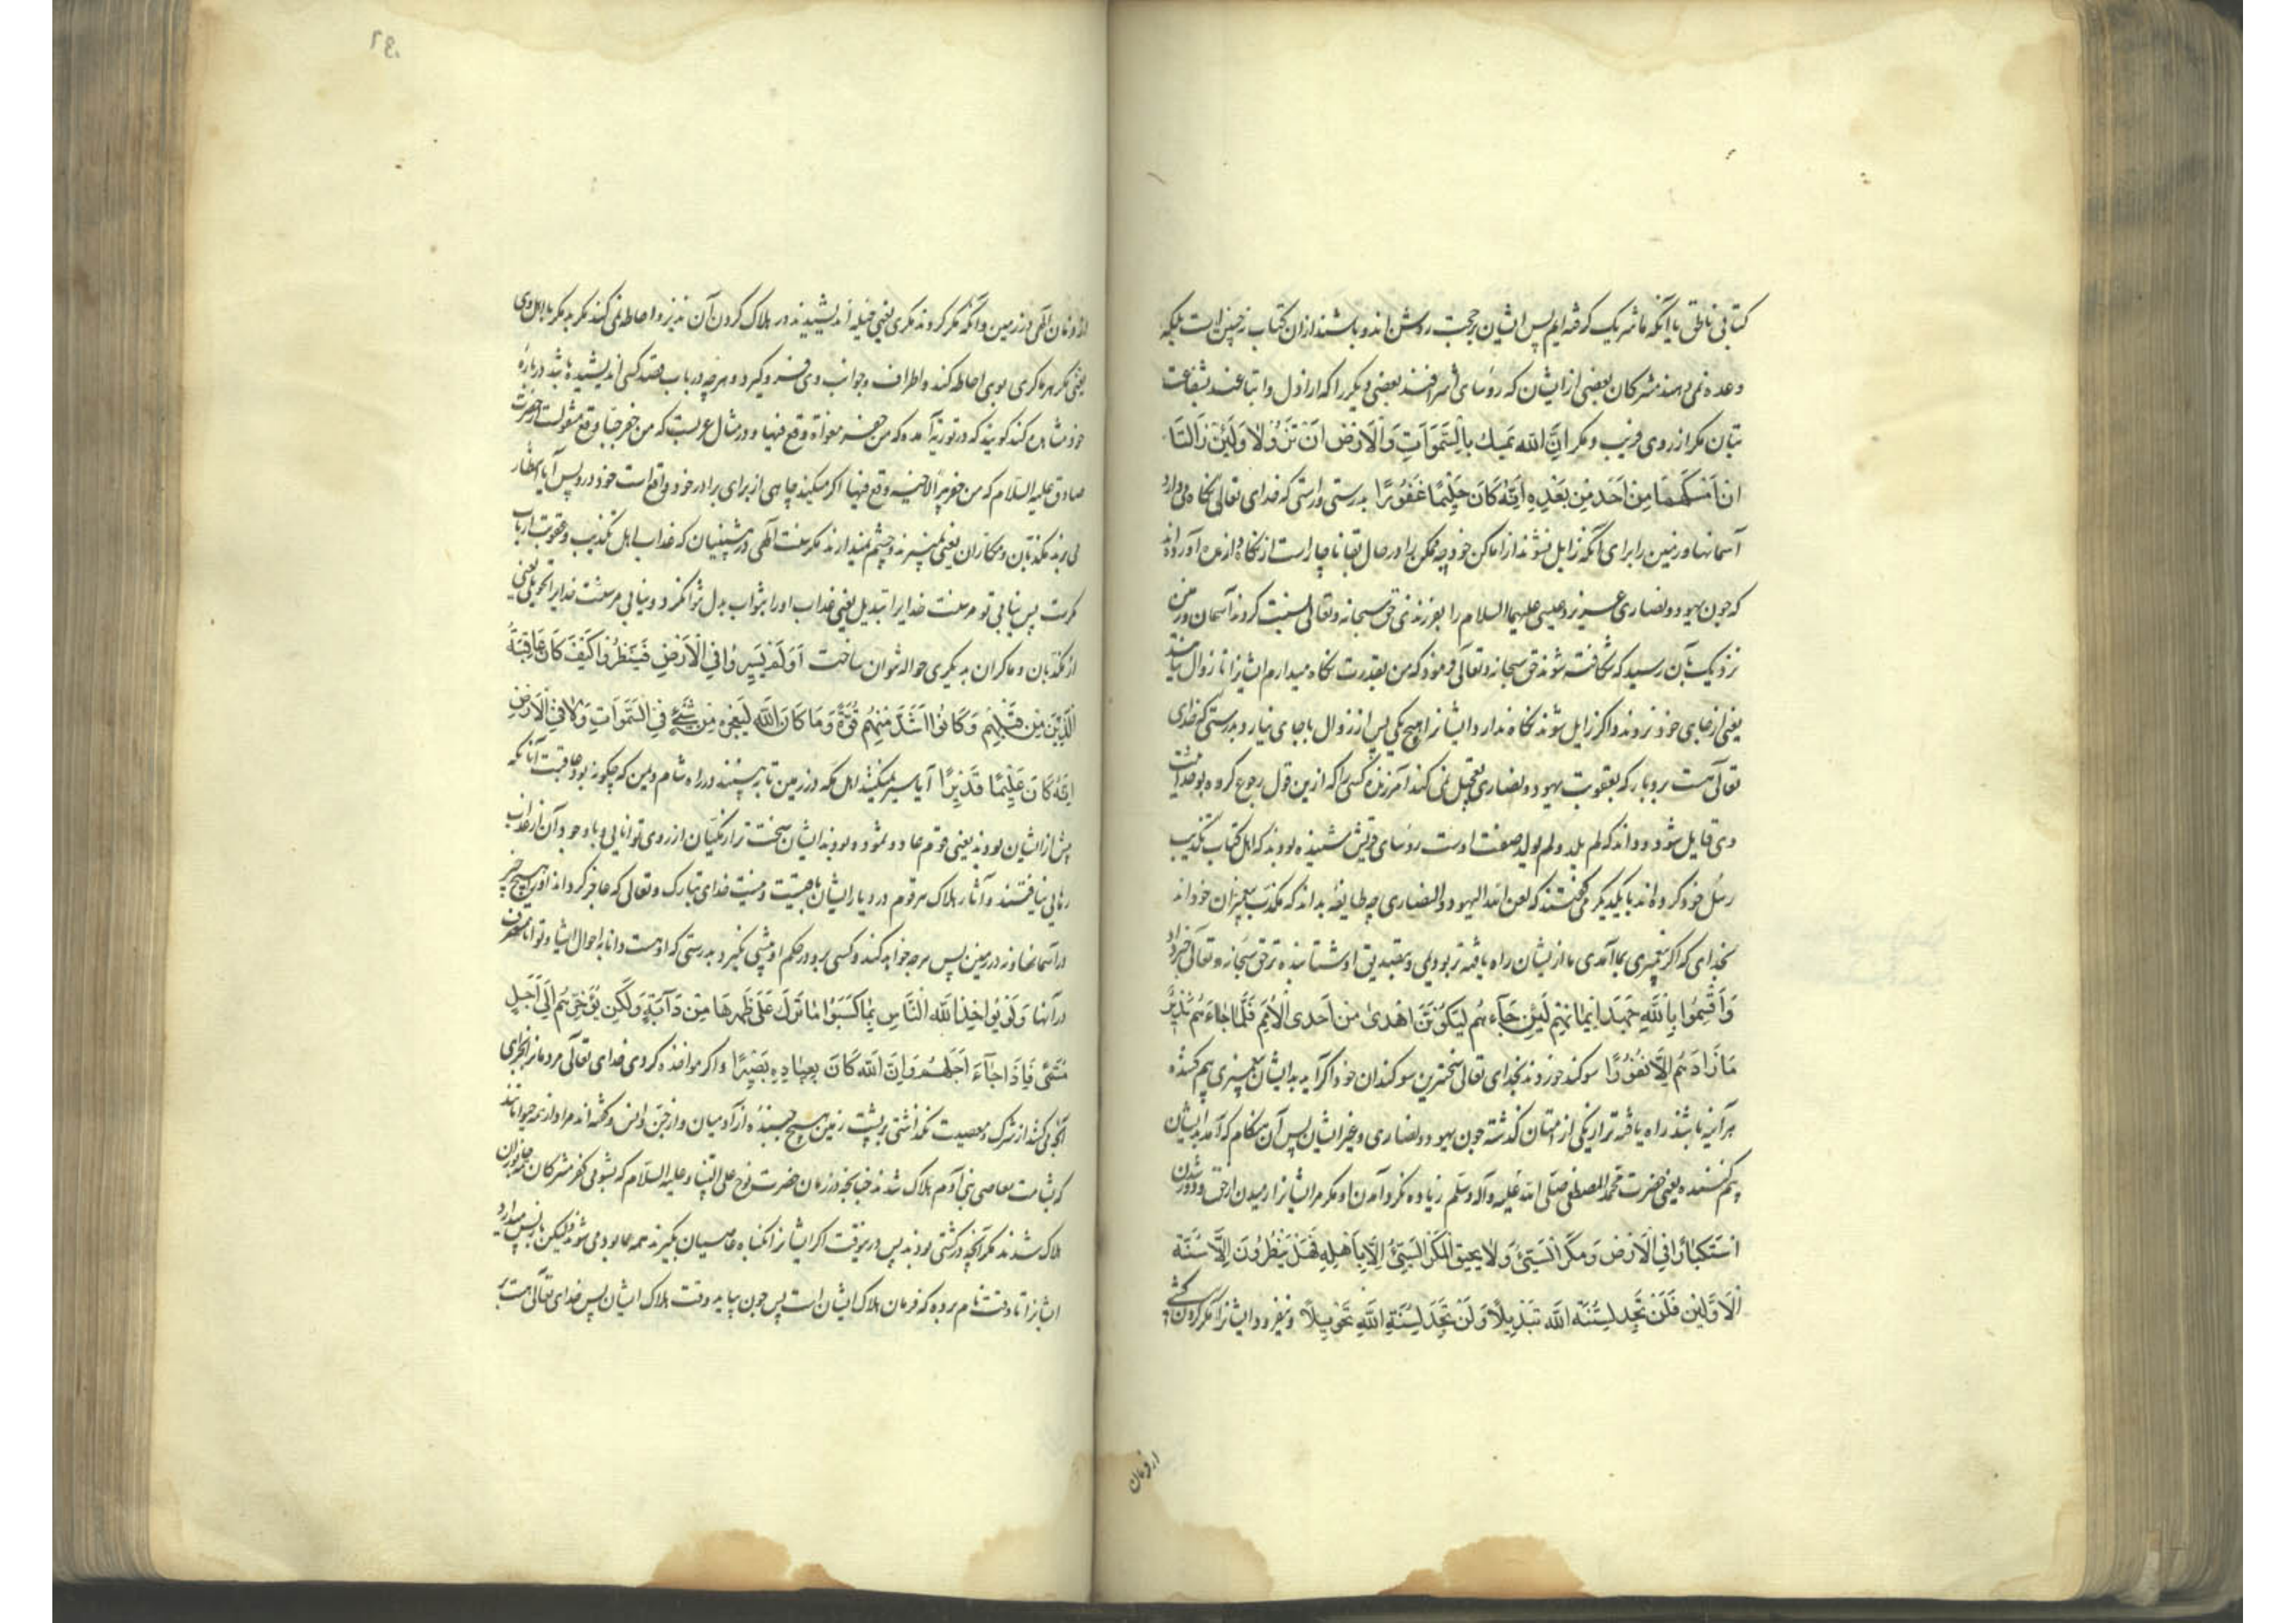 کتابی ناطق با آنکه ما شریک گرفته‌ایم پس ایشان بر حجت روشن‌اند و باشند از آن کتاب نه چنین است بلکه
وعده نمی‌دهند مشرکان بعضی از ایشان که رؤسای اشرافند بعضی دیگر را که اراذل و اتباعند بشفاعت
بتان مکر از روی فریب و مکر اِنَّ اللّٰه یُمسِكُ بِالسَّمٰوَاتِ وَالاَرْضَ اَنْ تَزُولَا وَلَئِنْ زَالَتَا
اِنْ اَمْسَكَهُمَا مِنْ اَحَدٍ مِنْ بَعْدِهِ اِنَّهُ كَانَ حَلِیْمًا غَفُوْرًا بدرستی و راستی که خدای تعالی نگاه می‌دارد
آسمانها و زمین را برای آنکه زایل نشوند از اماکن خود چه ممکن را در حال بقا ناچار است از نگاه دارنده آورده‌اند
که چون یهود و نصاری عزیر و عیسی علیهما السلام را بفرزندی حق سبحانه و تعالی نسبت کردند آسمان و زمین
نزدیک بآن رسید که شکافته شوند حق سبحانه و تعالی فرمود که من بقدرت نگاه میدارم ایشانرا تا زوال نیابند
یعنی از جای خود نروند و اگر زایل شوند نگاه ندارد ایشانرا هیچ یکی پس از زوال با جای نیارد و بدرستی که خدای
تعالی هست بردبار که بعقوبت یهود و نصاری تعجیل نمی کند آمرزنده کسی را که ازین قول رجوع کرده بوحدانیت
وی قایل شود و داند که لم یلد و لم یولد صفت اوست رؤسای قریش شنیده بودند که اهل کتاب تکذیب
رسل خود کرده‌اند با یکدیگر می‌گفتند که لعن الله الیهود و النصاری چه طایفه بداند که مکذب پیغمبران خوداند
بخدای که اگر پیغمبری بما آمدی ما از ایشان راه یافته‌تر بودیمی و بتصدیق او شتابنده‌تر حق سبحانه و تعالی خبر داد
وَاَقْسَمُوا بِاللّٰهِ جَهْدَ اَیْمَانِهِمْ لَئِنْ جَآءَهُمْ لَیَكُوْنُنَّ اَهْدٰى مِنْ اِحْدَى الْاُمَمِ فَلَمَّا جَاءَهُمْ نَذِیْرٌ
مَا زَادَهُمْ اِلَّا نُفُوْرًا سوگند خوردند بخدای تعالی سخت‌ترین سوگندان خود اگر آید بدایشان پیغمبری بیم کننده
هر آینه باشند راه یافته‌تر از یکی از امتان گذشته چون یهود و نصاری و غیر ایشان پس آن هنگام که آمد بدیشان
بیم کننده یعنی حضرت محمد المصطفی صلی الله علیه و آله و سلم زیاده نکرد آمدن او مگر مر ایشانرا رمیدن از حق و دور شدن
اسْتِكْبَارًا فِی الْاَرْضِ وَمَكْرَ السَّیِّئِ وَلَا یَحِیْقُ الْمَكْرُ السَّیِّئُ اِلَّا بِاَهْلِهِ فَهَلْ یَنْظُرُوْنَ اِلَّا سُنَّةَ
الْاَوَّلِیْنَ فَلَنْ تَجِدَ لِسُنَّةِ اللّٰهِ تَبْدِیْلًا وَلَنْ تَجِدَ لِسُنَّةِ اللّٰهِ تَحْوِیْلًا و نیفزود ایشانرا مگر گردن کشی
از فرمان
از فرمان الهی در زمین و آنکه مکر کردند مکری یعنی حیله اندیشیدند در هلاک کردن آن نذیر و احاطه نمی کند مکر بد مگر باهل وی
یعنی مکر هر ماکری بوی احاطه کند و اطراف و جوانب وی فرو گیرد و هر چه در باب قصد کسی اندیشیده باشد درباره
خود مشاهده کند گویند که در توریة آمده که من حفر مغواة وقع فیها و در مثال عربست که من حفر جبا وقع منقولست از حضرت
صادق علیه السلام که من حفر بئرا لاخیه وقع فیها اگر میکنید چاهی از برای برادر خود واقع است خود درو پس آیا انتظار
می‌برند مکذبان و مکاران یعنی نمی‌برند و چشم نمیدارند مگر سنت الهی در پیشینیان که عذاب اهل تکذیب و عقوبت ارباب
مکرست پس نیابی تو مر سنت خدایرا تبدیل یعنی عذاب او را بثواب بدل نتوان کرد و نیابی مر سنت خدایرا تحویل یعنی
از مکذبان و ماکران بدیگری حواله نتوان ساخت اَوَلَمْ یَسِیْرُوا فِی الْاَرْضِ فَیَنْظُرُوا كَیْفَ كَانَ عَاقِبَةُ
الَّذِیْنَ مِنْ قَبْلِهِمْ وَكَانُوا اَشَدَّ مِنْهُمْ قُوَّةً وَمَا كَانَ اللّٰهُ لِیُعْجِزَهُ مِنْ شَیْءٍ فِی السَّمٰوَاتِ وَلَا فِی الْاَرْضِ
اِنَّهُ كَانَ عَلِیْمًا قَدِیْرًا آیا سیر نمیکنند اهل مکه در زمین تا ببینند در راه شام و یمن که چگونه بود عاقبت آنانکه
پیش از ایشان بودند یعنی قوم عاد و ثمود و بودند ایشان سخت‌تر از مکیان از روی توانایی و با وجود آن از عذاب
رهایی نیافتند و آثار هلاک هر قوم در دیار ایشان باقیست و نیست خدای تبارک و تعالی که عاجز گرداند او را هیچ چیز
در آسمانها و نه در زمین پس هر چه خواهد کند و کسی برو در حکم او پیشی نگیرد بدرستی که اوست دانا به احوال اشیا و توانا بتصرف
در آنها وَلَوْ یُؤَاخِذُ اللّٰهُ النَّاسَ بِمَا كَسَبُوا مَا تَرَكَ عَلٰى ظَهْرِهَا مِنْ دَآبَّةٍ وَلَكِنْ یُؤَخِّرُهُمْ اِلٰى اَجَلٍ
مُسَمًّى فَاِذَا جَآءَ اَجَلُهُمْ فَاِنَّ اللّٰهَ كَانَ بِعِبَادِهِ بَصِیْرًا و اگر مواخذه کردی خدای تعالی مردمانرا بجزای
آنچه می‌کنند از شرک و معصیت نگذاشتی بر پشت زمین هیچ جنبنده از آدمیان و از جن و انس و گفته‌اند مراد از همه حیوانانند
که بشامت معاصی بنی آدم هلاک شدند چنانچه در زمان حضرت نوح علی نبینا و علیه السلام که بشومی کفر مشرکان جانوران
هلاک شدند مگر آنچه در کشتی بودند پس درین وقت اگر ایشانرا بگناه عاصیان بگیرند همه نابود می شوند و لیکن باز پس میدارد
ایشانرا تا وقت نام برده که فرمان هلاک ایشان است پس چون بیاید وقت هلاک ایشان پس خدای تعالی هست